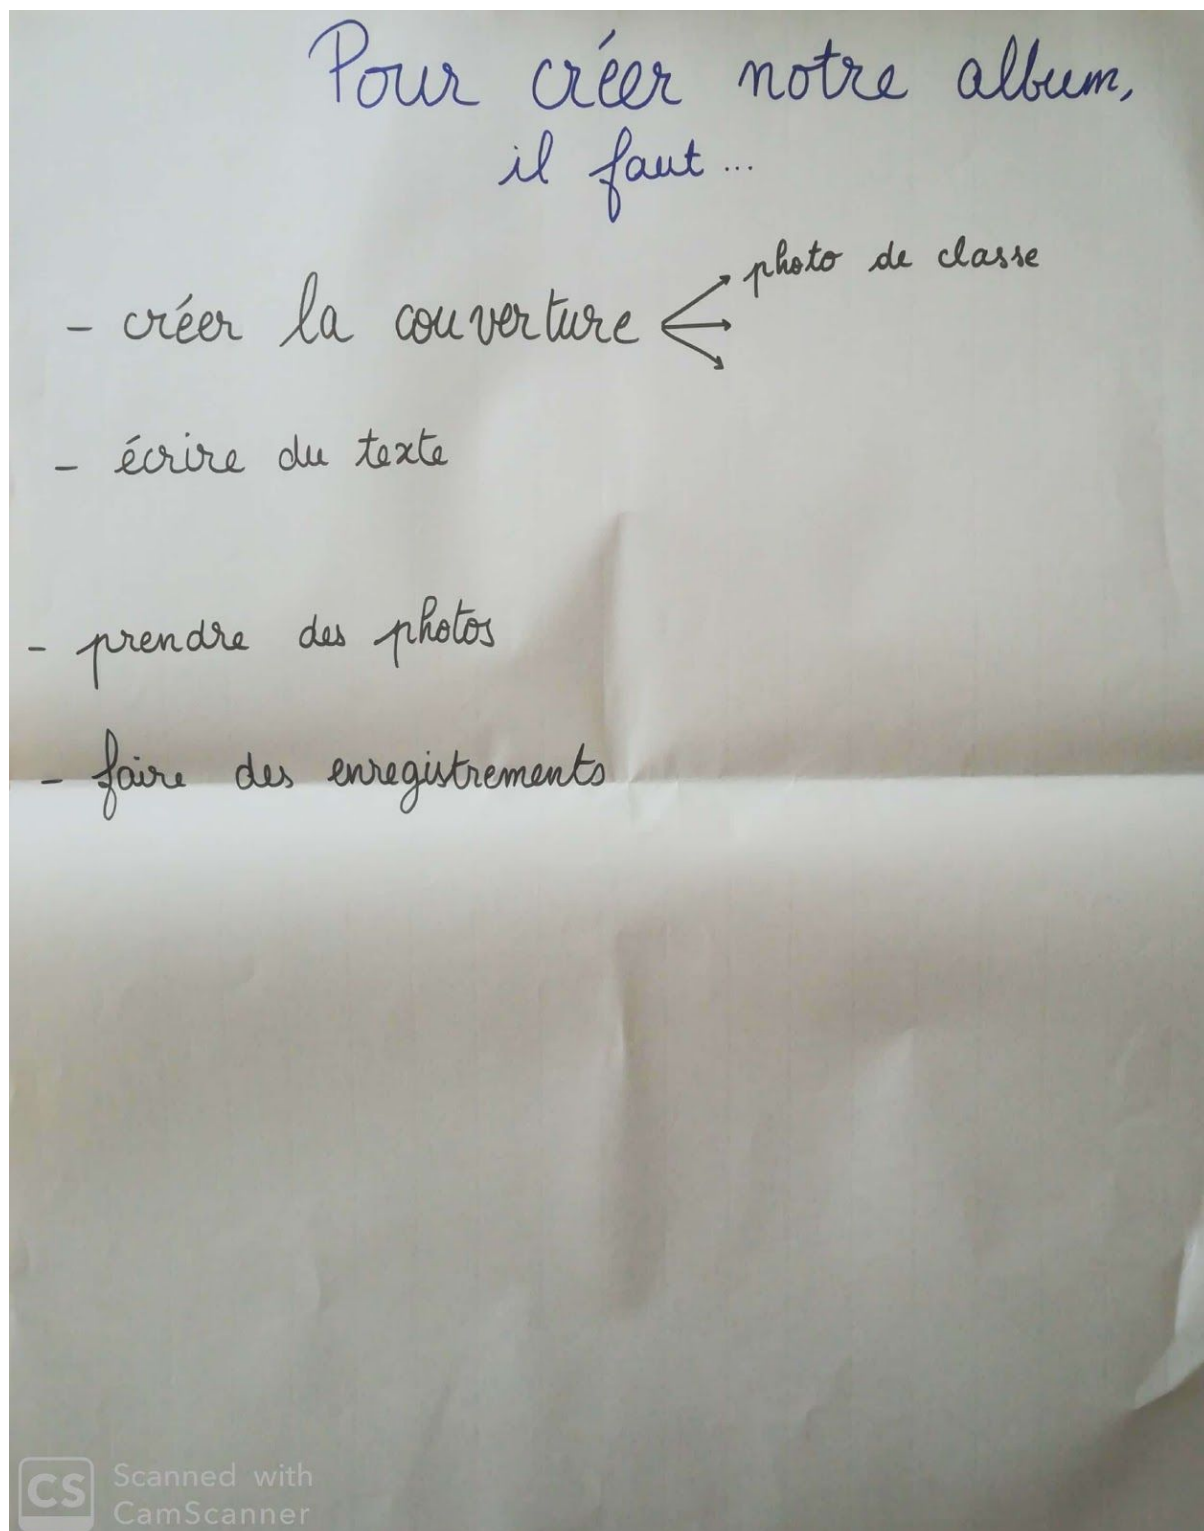 Pour créer notre album,
il faut ...
photo de classe
- créer la couverture
- écrire du texte
- prendre des photos
- faire des enregistrements
CS Scanned with
CamScanner